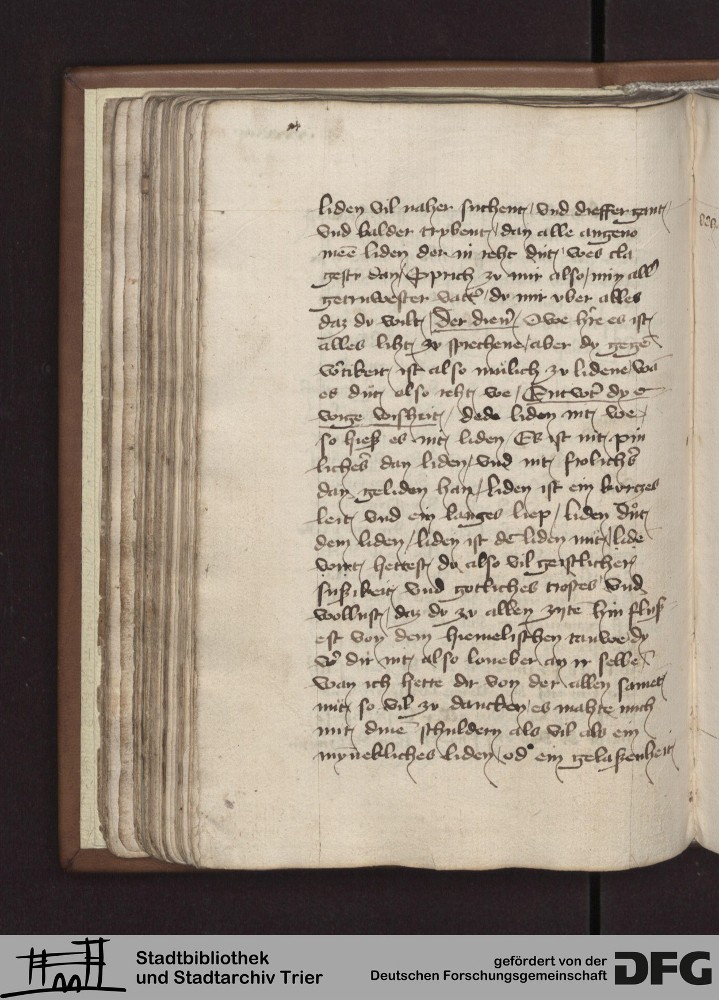 liden vil naher suchent / vnd dieffer gant /
vnd balder trybent / dan alle angeno
mē liden der in reht dut / wes cla
gestu dan / Sprich zu mir also / min all
getruwester vatt̃ / du mir vber alles
daz du wilt / Der dien̄ / Owe h̄re es ist
alles liht zu sprechene / aber dy gegē
v̄tikeit ist also mulich zu lidene / wā
es dut also reht we / Entwort dy e
wige wisheit / dede liden nit we /
so hieß es nit liden / Es ist nit pin
lichers dan liden / vnd nit frolichers
dan geliden han / liden ist ein kurczes
leit vnd ein langes liep / liden dut
dem liden / liden ist dē liden nit lide
wirt hettest du also vil geistlicher
sussikeit vnd gotliches trostes vnd
wollust / daz du zu allen zyte hin fluß
est von dem hiemelischen tauwe dy
w̄ dir nit also loneber an ir selbē
wan ich hette dir von der allen samet
nit so vil zu dancken / es mahte mich
nit dinē schuldern als vil als ein
mynekliches liden / od̾ ein gelaßenheit
Stadtbibliothek
und Stadtarchiv Trier
gefördert von der
Deutschen Forschungsgemeinschaft
DFG